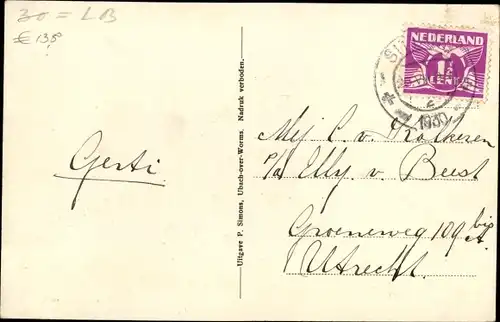 30 = LB
€ 13,5
Gerti
Uitgave P. Simons, Ubach-over-Worms. Nadruk verboden.
NEDERLAND
1½
CENT
1930
Mej C. v.
p/a Elly. v. Beest
Groeneweg 109 bis A.
Utrecht.